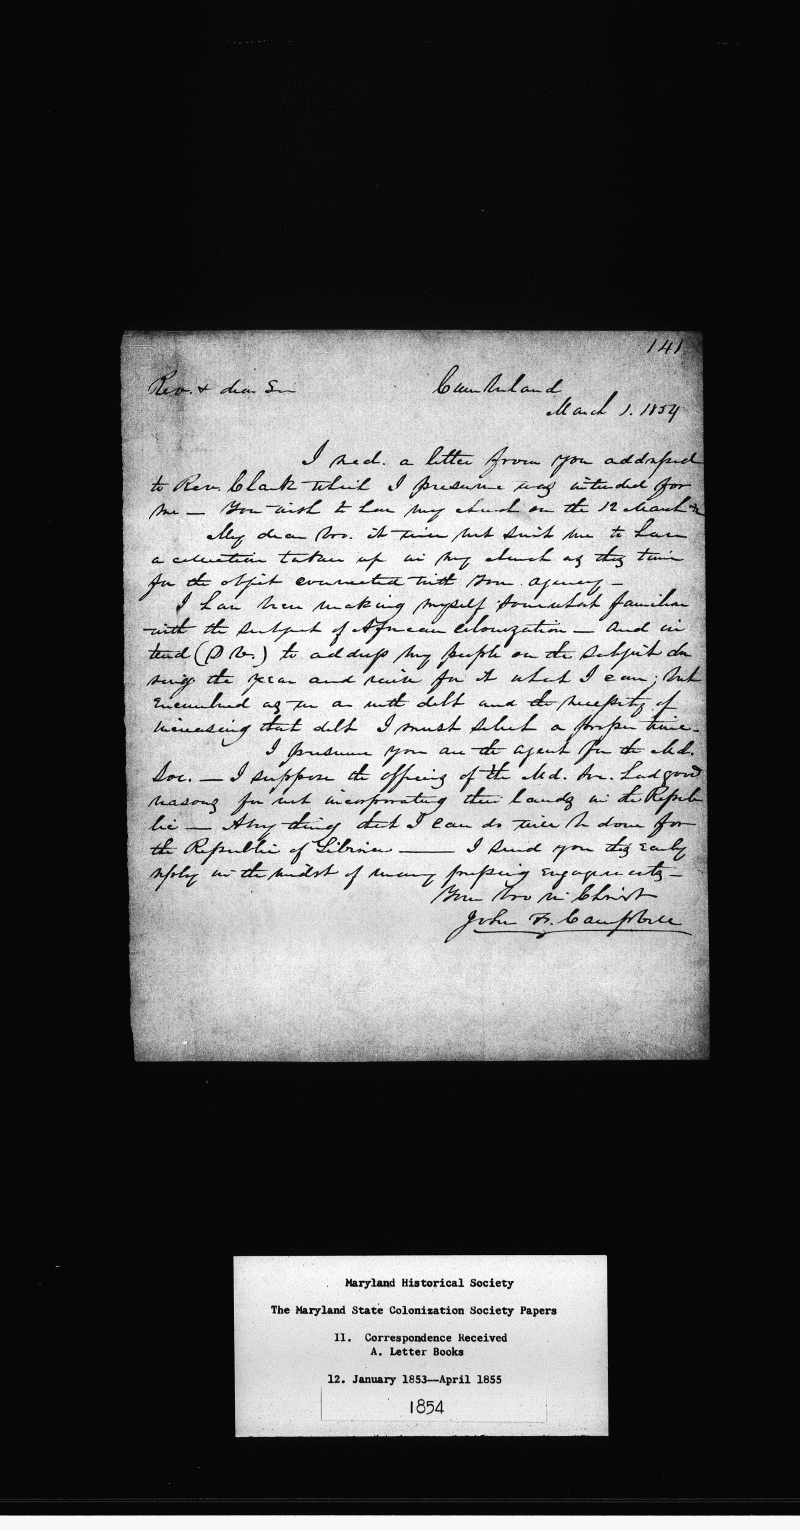 141
Rev. & dear Sir Cumberland
March 1. 1854
I recd. a letter from you addressed
to Rev. Clark which I presume was intended for
me — You wish to have my church on the 12 March
My dear bro. it will not suit me to have
a collection taken up in my church at this time
for the object connected with your agency —
I have been making myself somewhat familiar
with the subject of African colonization — and in
tend (D.V.) to address my people on the subject du
ring the year and raise for it what I can; but
encumbered as we are with debt and the necessity of
increasing that debt I must select a proper time —
I presume you are the agent for the Md.
Soc. — I suppose the officers of the Md. Soc. had good
reasons for not incorporating their lands in the Repub
lic — Any thing that I can do will be done for
the Republic of Liberia — I send you this early
reply in the midst of many pressing engagements —
Your bro in Christ
John F. Campbell
Maryland Historical Society
The Maryland State Colonization Society Papers
11. Correspondence Received
A. Letter Books
12. January 1853--April 1855
1854